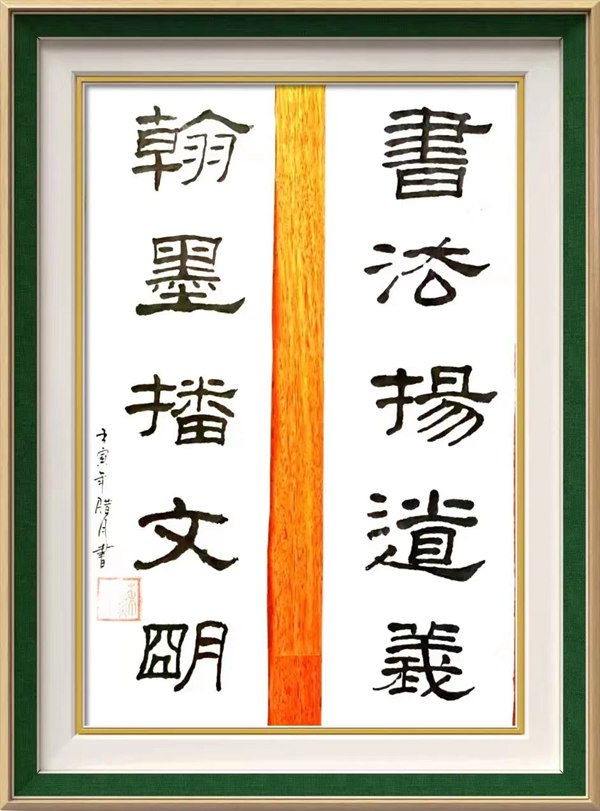 書法揚道義
翰墨播文明
壬寅年腊月書